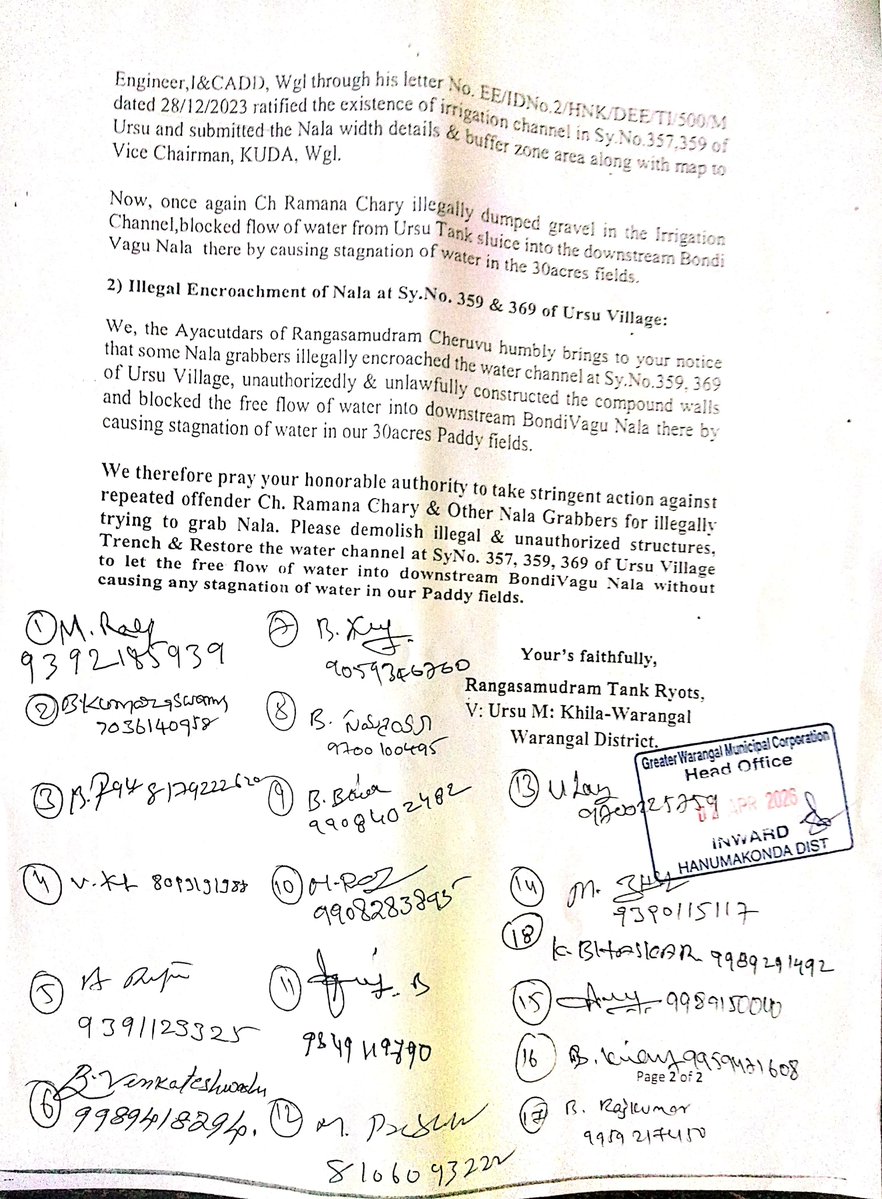 Engineer,I&CADD, Wgl through his letter No. EE/IDNo.2/HNK/DEE/TI/500/M
dated 28/12/2023 ratified the existence of irrigation channel in Sy.No.357,359 of
Ursu and submitted the Nala width details & buffer zone area along with map to
Vice Chairman, KUDA, Wgl.
Now, once again Ch Ramana Chary illegally dumped gravel in the Irrigation
Channel,blocked flow of water from Ursu Tank sluice into the downstream Bondi
Vagu Nala there by causing stagnation of water in the 30acres fields.
2) Illegal Encroachment of Nala at Sy.No. 359 & 369 of Ursu Village:
We, the Ayacutdars of Rangasamudram Cheruvu humbly brings to your notice
that some Nala grabbers illegally encroached the water channel at Sy.No.359, 369
of Ursu Village, unauthorizedly & unlawfully constructed the compound walls
and blocked the free flow of water into downstream BondiVagu Nala there by
causing stagnation of water in our 30acres Paddy fields.
We therefore pray your honorable authority to take stringent action against
repeated offender Ch. Ramana Chary & Other Nala Grabbers for illegally
trying to grab Nala. Please demolish illegal & unauthorized structures,
Trench & Restore the water channel at SyNo. 357, 359, 369 of Ursu Village
to let the free flow of water into downstream BondiVagu Nala without
causing any stagnation of water in our Paddy fields.
Your's faithfully,
Rangasamudram Tank Ryots,
V: Ursu M: Khila-Warangal
Warangal District.
Greater Warangal Municipal Corporation
Head Office
APR 2026
INWARD
HANUMAKONDA DIST
1 M.
9392185939
2 B.Kumaraswamy
7036140958
3 B.
4 V.
5 A
9391123325
6 B. Venkateshwarlu
9989418294.
7 B.
9059346760
8 B.
9700100495
9 B.
9908402482
10
9908283895
11 B
9349119790
12 M.
8106093222
13
14 M.
9390115117
18
K. BHASKAR 9989291492
15 9989150040
16 B. Kiran 9959471608
Page 2 of 2
17 B. Rajkumar
9959217450